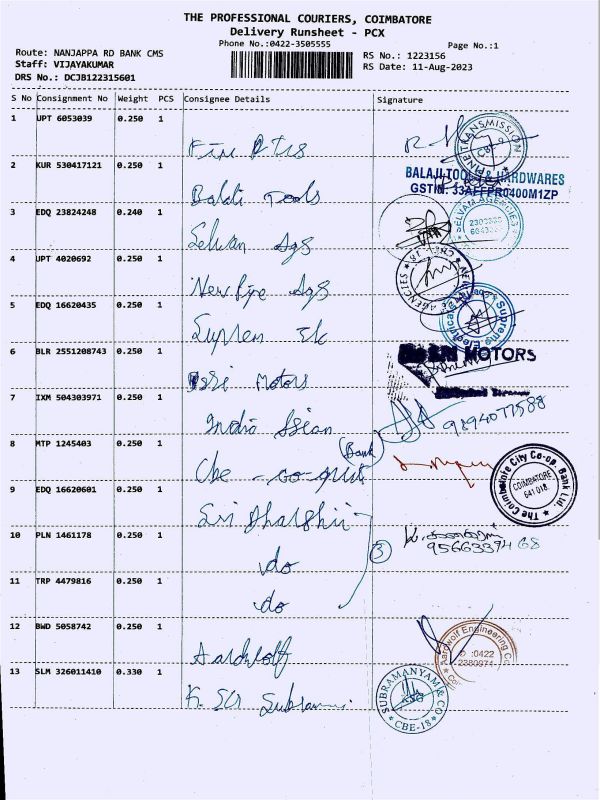 THE PROFESSIONAL COURIERS, COIMBATORE
Delivery Runsheet - PCX
Phone No.:0422-3505555
Page No.:1
Route: NANJAPPA RD BANK CMS
Staff: VIJAYAKUMAR
DRS No.: DCJB122315601
RS No.: 1223156
RS Date: 11-Aug-2023
S No Consignment No Weight PCS Consignee Details Signature
1 UPT 6053039 0.250 1
PINE TRANSMISSION
CBE-9
2 KUR 530417121 0.250 1 Balaji Tools
BALAJI TOOLS & HARDWARES
GSTIN: 33AFFPR0400M1ZP
3 EDQ 23824248 0.240 1 Selvam Ags
SELVAM AGENCIES
4 UPT 4020692 0.250 1 New Pipe Ags
NEW PIPE AGENCIES
5 EDQ 16620435 0.250 1 Suprem
Supreme Electrical
6 BLR 2551208743 0.250 1 Sri Motors
SRI MOTORS
7 IXM 504303971 0.250 1 India Asian
9894077588
8 MTP 1245403 0.250 1 Cbe - co-opt (Bank)
The Coimbatore City Co-op. Bank Ltd.
COIMBATORE
641 018.
9 EDQ 16620601 0.250 1 Sri Dharshini
10 PLN 1461178 0.250 1 do
3
9566339468
11 TRP 4479816 0.250 1 do
12 BWD 5058742 0.250 1 Aardwolf
Aardwolf Engineering Co
:0422
2380971
13 SLM 326011410 0.330 1 K. SCr Subramani
SUBRAMANYAM & CO
CBE-18